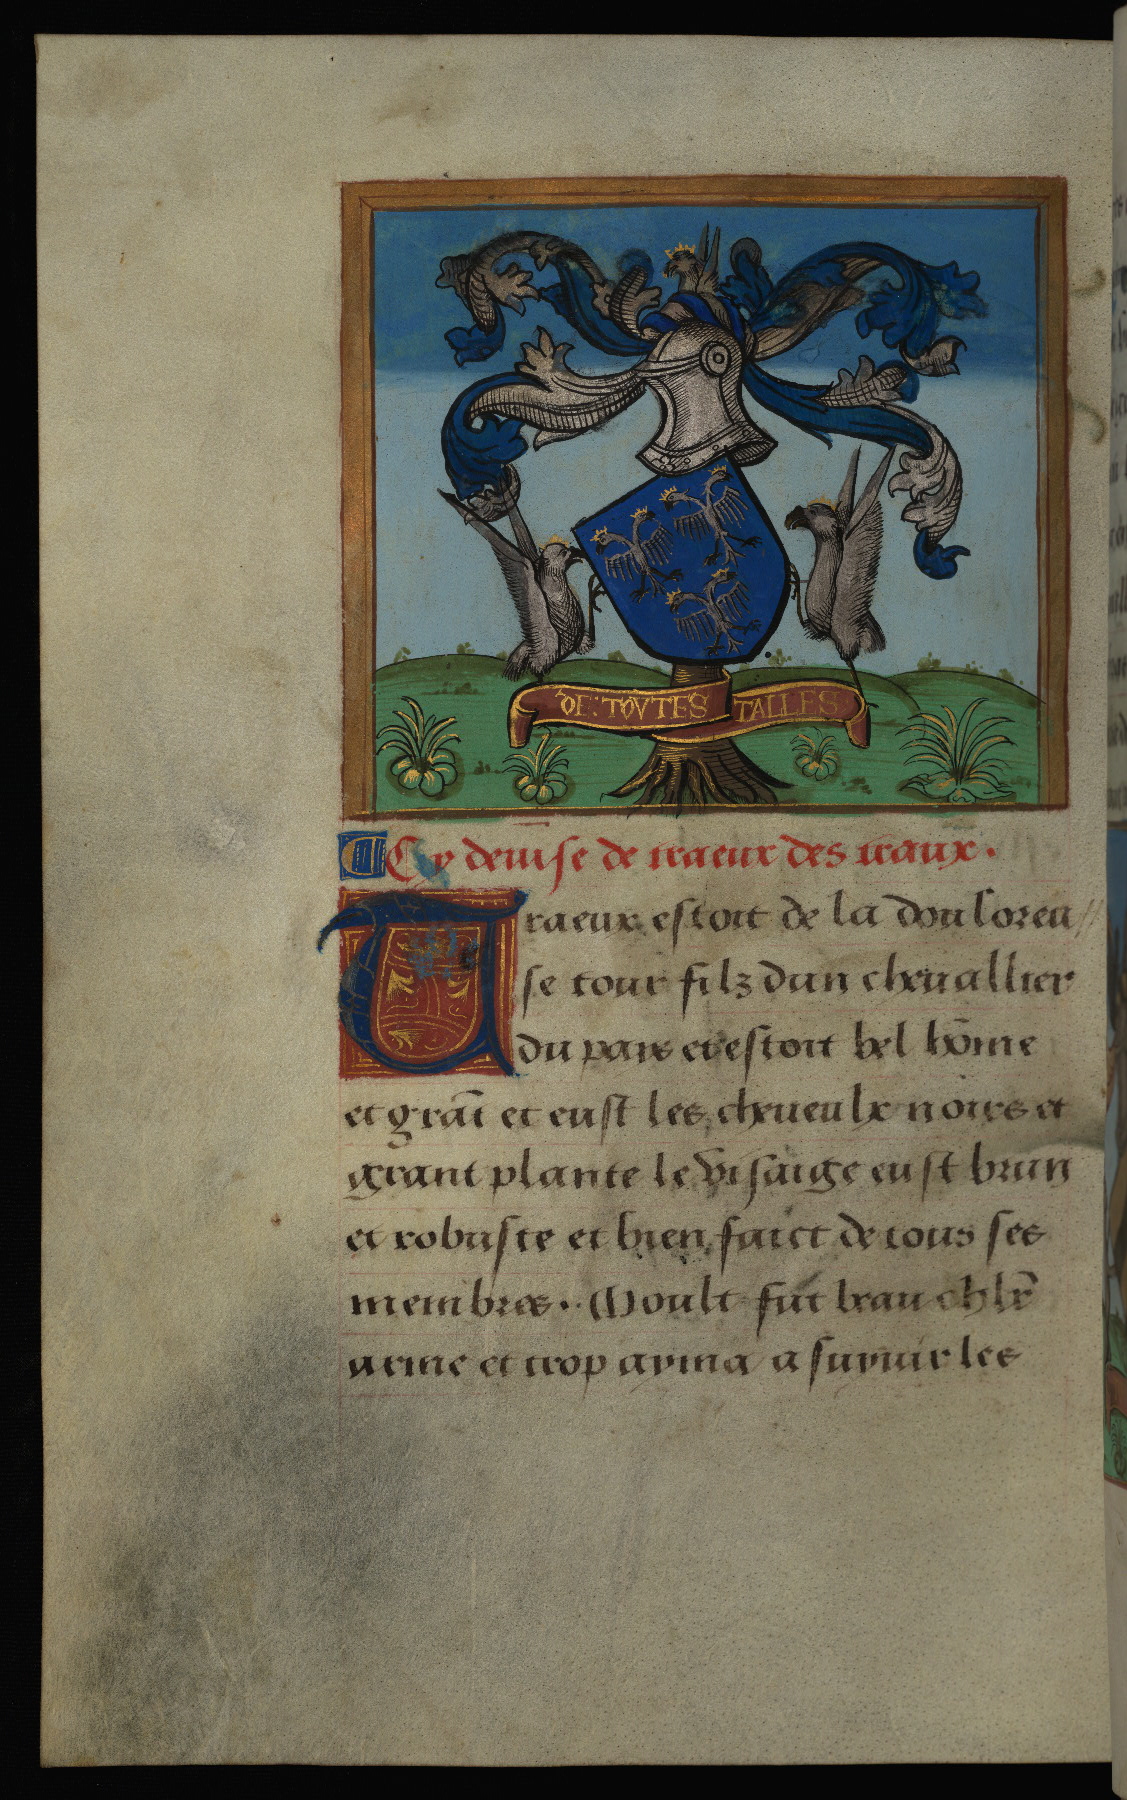 DE: TOVTES TALLES
Cy deuise de traeux des traux.
Traeux estoit de la douloreu//
se tour filz dun cheuallier
du pais et estoit bel hōme
et grāt et eust les cheueulx noirs et
grant plante le visaige eust brun
et robuste et bien faict de tous ses
membres. Moult fut beau chlr̄
arme et trop ayma a suyuir les